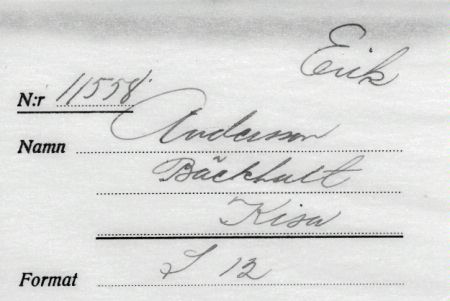 Erik
N:r 11558
Namn Andersson
Bäckhult
Kisa
Format L 12